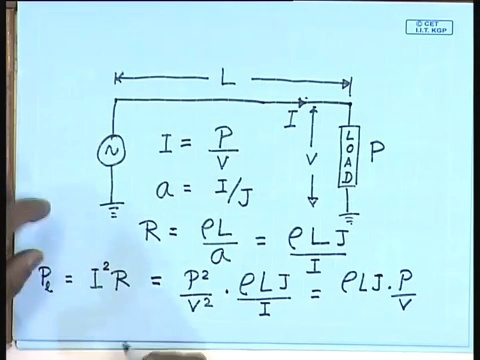 © CET
I.I.T. KGP
L
I
V
LOAD
P
I = P/V
a = I/J
R = ρL/a = ρLJ/I
Pℓ = I²R = P²/V² · ρLJ/I = ρLJ · P/V